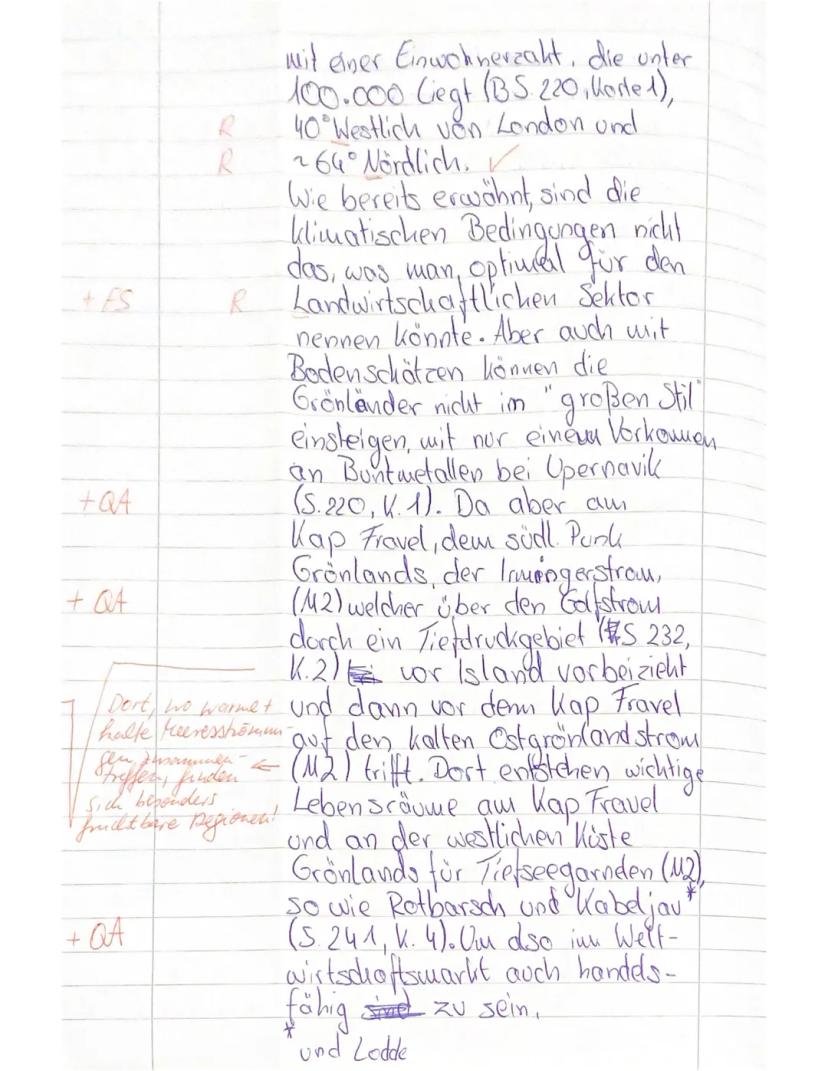 mit einer Einwohnerzahl, die unter
100.000 liegt (BS. 220, Karte 1),
R 40° Westlich von London und
R ~64° Nördlich. ✓
Wie bereits erwähnt, sind die
klimatischen Bedingungen nicht
das, was man optimal für den
+ FS R Landwirtschaftlichen Sektor
nennen könnte. Aber auch mit
Bodenschätzen können die
Grönländer nicht im "großen Stil"
einsteigen, mit nur einem Vorkommen
an Buntmetallen bei Upernavik
+ QA (S. 220, K. 1). Da aber am
Kap Fravel, dem südl. Punk
Grönlands, der Irmingerstrom,
+ QA (M2) welcher über den Golfstrom
durch ein Tiefdruckgebiet (S 232,
K. 2) vor Island vorbeizieht
und dann vor dem Kap Fravel
auf den kalten Ostgrönlandstrom
(M2) trifft. Dort entstehen wichtige
Lebensräume am Kap Fravel
und an der westlichen Küste
Grönlands für Tiefseegarnden (M2),
so wie Rotbarsch und Kabeljau*
+ QA (S. 241, K. 4). Um also im Welt-
wirtschaftsmarkt auch handels-
fähig sind zu sein,
* und Lodde
Dort, wo warme +
kalte Meeresströmun-
gen zusammen-
treffen, finden
sich besonders
fruchtbare Regionen!